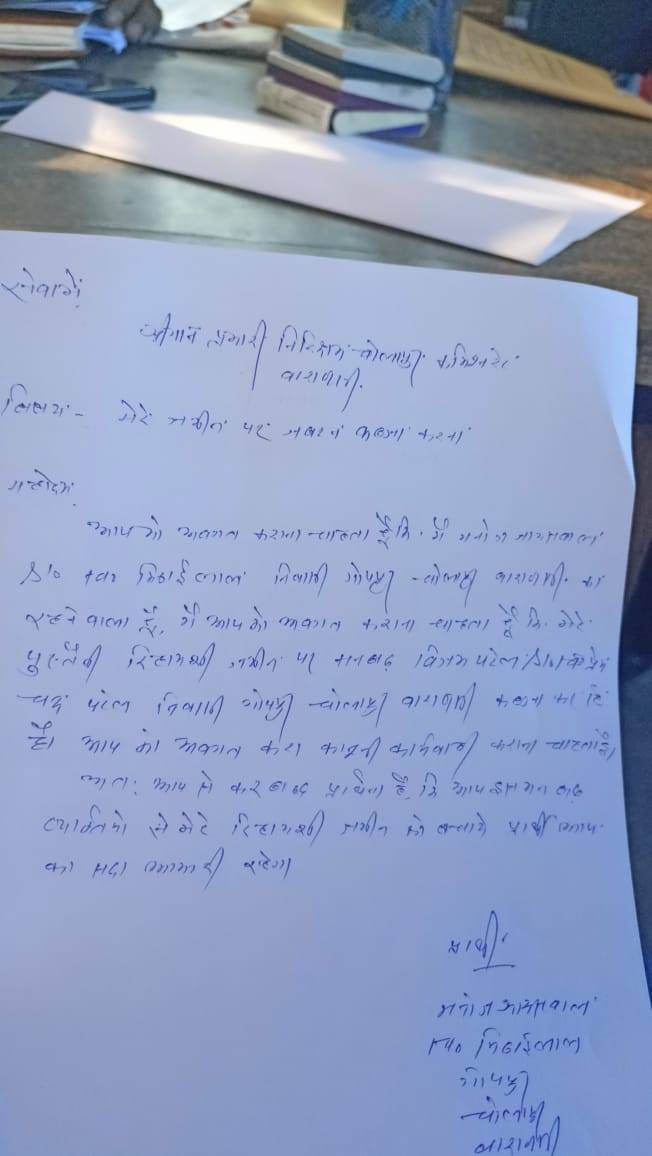 सेवामें,
श्रीमान प्रभारी निरिक्षक चोलापुर कमिश्नरेट
वाराणसी.
विषय - मेरे जमीन पर जबरन कब्जा करना
महोदय,
आप को अवगत कराना चाहता हूँ कि. मैं मनोज जायसवाल
S/o स्व० मिठाईलाल निवासी चोलापुर वाराणसी. का
रहने वाला हूँ, मैं आपको अवगत कराना चाहता हूँ कि मेरे
पुस्तैनी रिहायशी जमीन पर मनबढ़ विजय पटेल S/o
पटेल निवासी चोलापुर वाराणसी कब्जा कर
है। आप को अवगत करा कानूनी कार्यवाही कराना चाहता हूँ।
अतः आप से करबद्ध प्रार्थना है, कि आप मन बढ़
व्यक्तियो से मेरे रिहायशी जमीन को बचाये प्रार्थी आप
का सदा आभारी रहेगा
प्रार्थी
मनोज जायसवाल
S/o मिठाईलाल
चोलापुर
वाराणसी